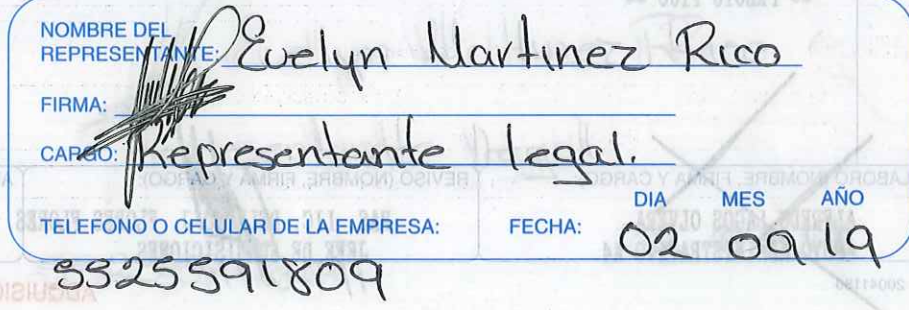 NOMBRE DEL
REPRESENTANTE: Evelyn Martinez Rico
FIRMA:
CARGO: Representante legal.
TELEFONO O CELULAR DE LA EMPRESA: FECHA: DIA MES AÑO
02 09 19
5525591809